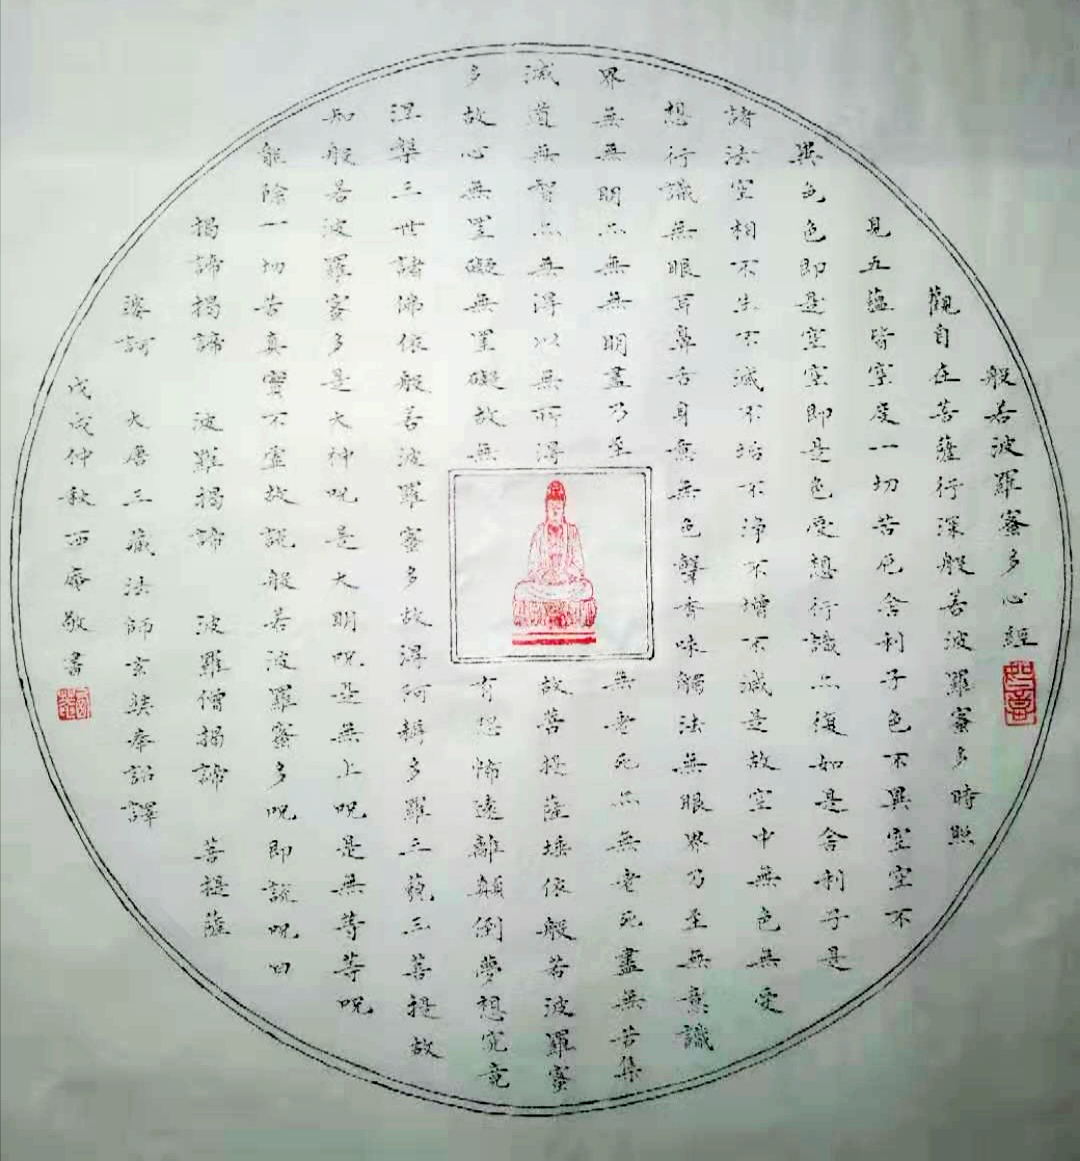 般若波羅蜜多心經
觀自在菩薩行深般若波羅蜜多時照
見五蘊皆空度一切苦厄舍利子色不異空空不
異色色即是空空即是色受想行識亦復如是舍利子是
諸法空相不生不滅不垢不淨不增不減是故空中無色無受
想行識無眼耳鼻舌身無無色聲香味觸法無眼界乃至無意識
界無無明亦無無明盡乃至無老死亦無老死盡無苦集
滅道無智亦無得以無所得故菩提薩埵依般若波羅蜜
多故心無罣礙無罣礙故無有恐怖遠離顛倒夢想究竟
涅槃三世諸佛依般若波羅蜜多故得阿耨多羅三藐三菩提故
知般若波羅蜜多是大神呪是大明呪是無上呪是無等等呪
能除一切苦真實不虛故說般若波羅蜜多呪即說呪曰
揭諦揭諦 波羅揭諦 波羅僧揭諦 菩提薩
婆訶 大唐三藏法師玄奘奉詔譯
戊戌仲秋西敬書